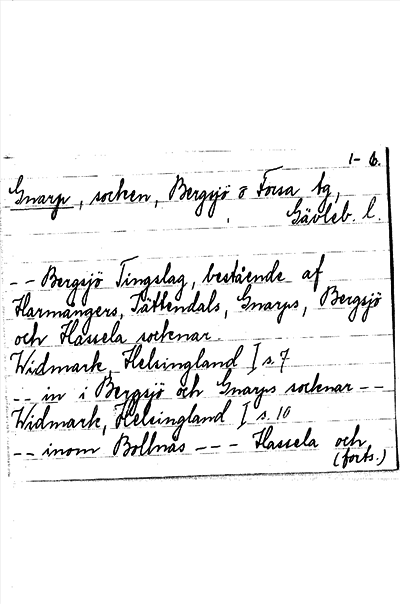 1-6.
Gnarp, socken, Bergsjö o Forsa tg,
Gävleb. l.
-- Bergsjö Tingslag, bestående af
Harmångers, Jättendals, Gnarps, Bergsjö
och Hassela socknar.
Widmark, Helsingland I s. 7
-- in i Bergsjö och Gnarps socknar --
Widmark, Helsingland I s. 10
-- inom Bollnäs --- Hassela och
(forts.)